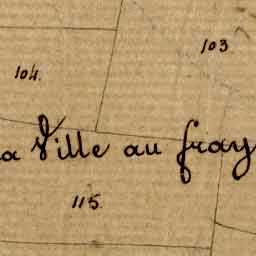 103
104.
a Ville au fray
115.